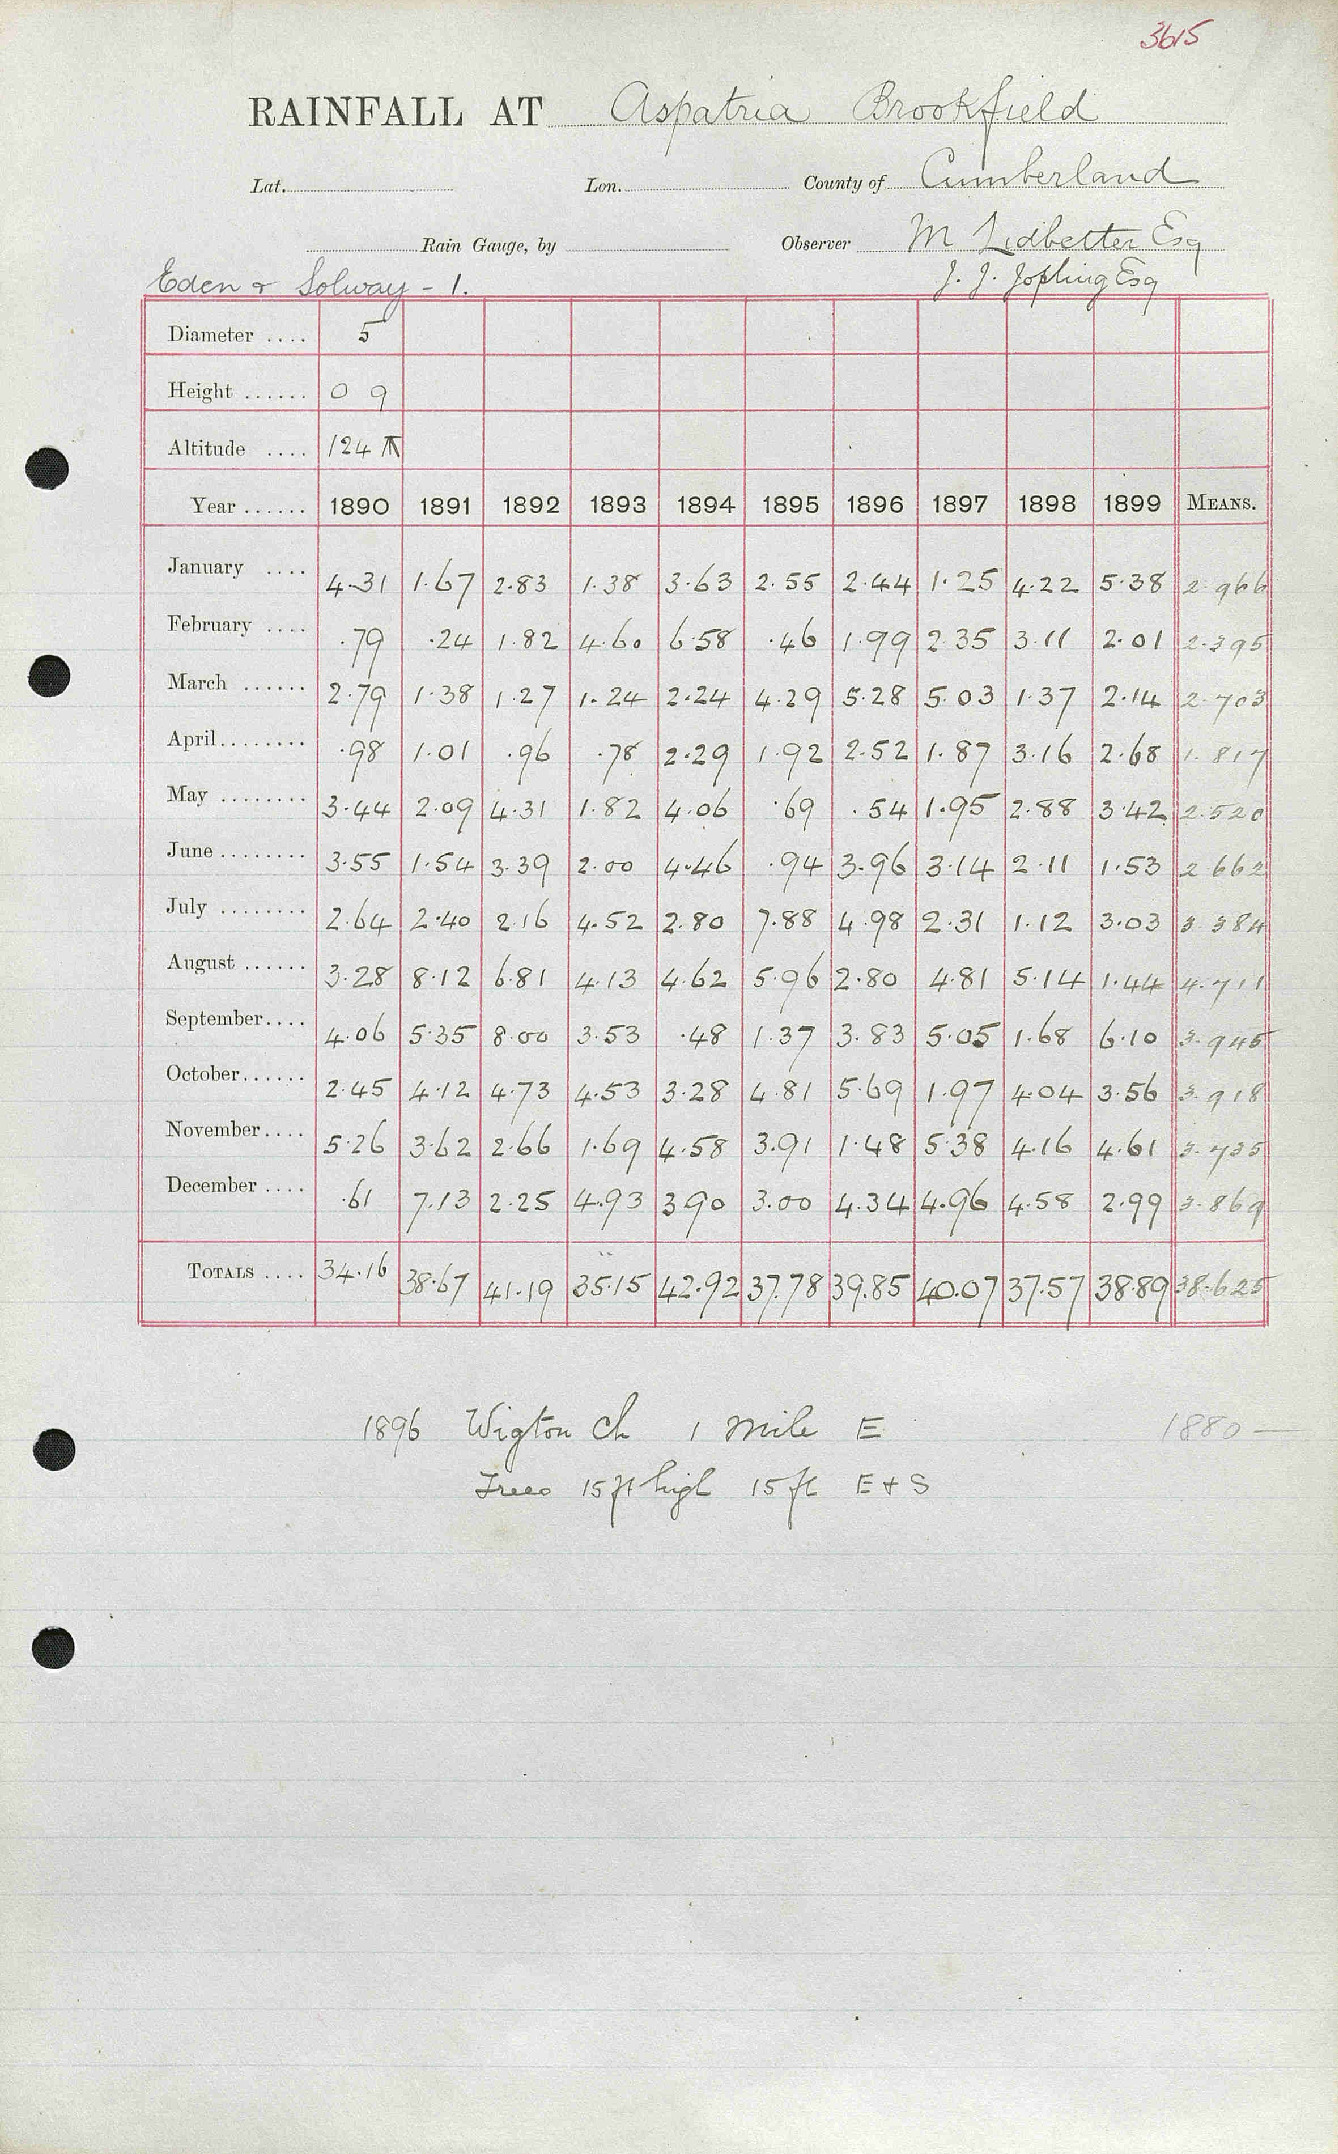 3615
RAINFALL AT Aspatria Brookfield
Lat. Lon. County of Cumberland
Rain Gauge, by Observer M Lidbetter Esq
Eden & Solway - 1. J. J. Jopling Esq
Diameter .... 5
Height ...... 0 9
Altitude .... 124
Year ...... 1890 1891 1892 1893 1894 1895 1896 1897 1898 1899 MEANS.
January .... 4.31 1.67 2.83 1.38 3.63 2.55 2.44 1.25 4.22 5.38 2.966
February .... .79 .24 1.82 4.60 6.58 .46 1.99 2.35 3.11 2.01 2.395
March ...... 2.79 1.38 1.27 1.24 2.24 4.29 5.28 5.03 1.37 2.14 2.703
April........ .98 1.01 .96 .78 2.29 1.92 2.52 1.87 3.16 2.68 1.817
May ........ 3.44 2.09 4.31 1.82 4.06 .69 .54 1.95 2.88 3.42 2.520
June ........ 3.55 1.54 3.39 2.00 4.46 .94 3.96 3.14 2.11 1.53 2.662
July ........ 2.64 2.40 2.16 4.52 2.80 7.88 4.98 2.31 1.12 3.03 3.384
August ...... 3.28 8.12 6.81 4.13 4.62 5.96 2.80 4.81 5.14 1.44 4.711
September.... 4.06 5.35 8.00 3.53 .48 1.37 3.83 5.05 1.68 6.10 3.945
October...... 2.45 4.12 4.73 4.53 3.28 4.81 5.69 1.97 4.04 3.56 3.918
November.... 5.26 3.62 2.66 1.69 4.58 3.91 1.48 5.38 4.16 4.61 3.735
December .... .61 7.13 2.25 4.93 3.90 3.00 4.34 4.96 4.58 2.99 3.869
TOTALS .... 34.16 38.67 41.19 35.15 42.92 37.78 39.85 40.07 37.57 38.89 38.625
1896 Wigton Ch 1 mile E 1880 —
Trees 15 ft high 15 ft E + S